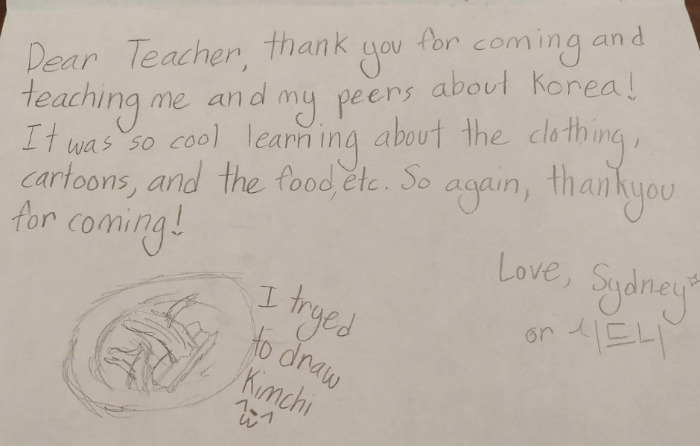 Dear Teacher, thank you for coming and
teaching me and my peers about Korea!
It was so cool learning about the clothing,
cartoons, and the food, etc. So again, thankyou
for coming!
Love, Sydney
or 시드니
I tryed
to draw
Kimchi